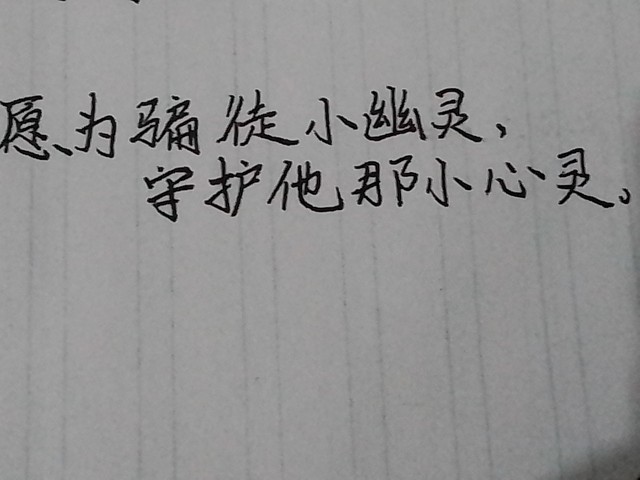 愿为骗徒小幽灵，
守护他那小心灵。